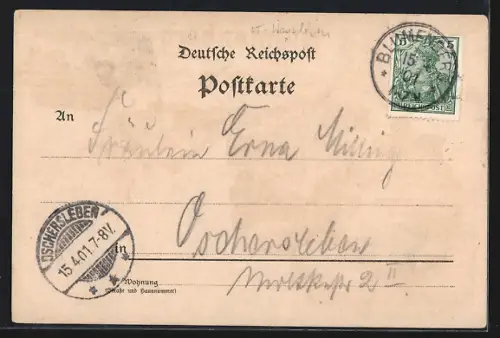 Deutsche Reichspost
Postkarte
5
BLUMENBERG
15
01
REICHSPOST
An
Fräulein Erna
OSCHERSLEBEN
15.4.01.7-8V.
in
Oschersleben
2 II
Wohnung
(Straße und Hausnummer)